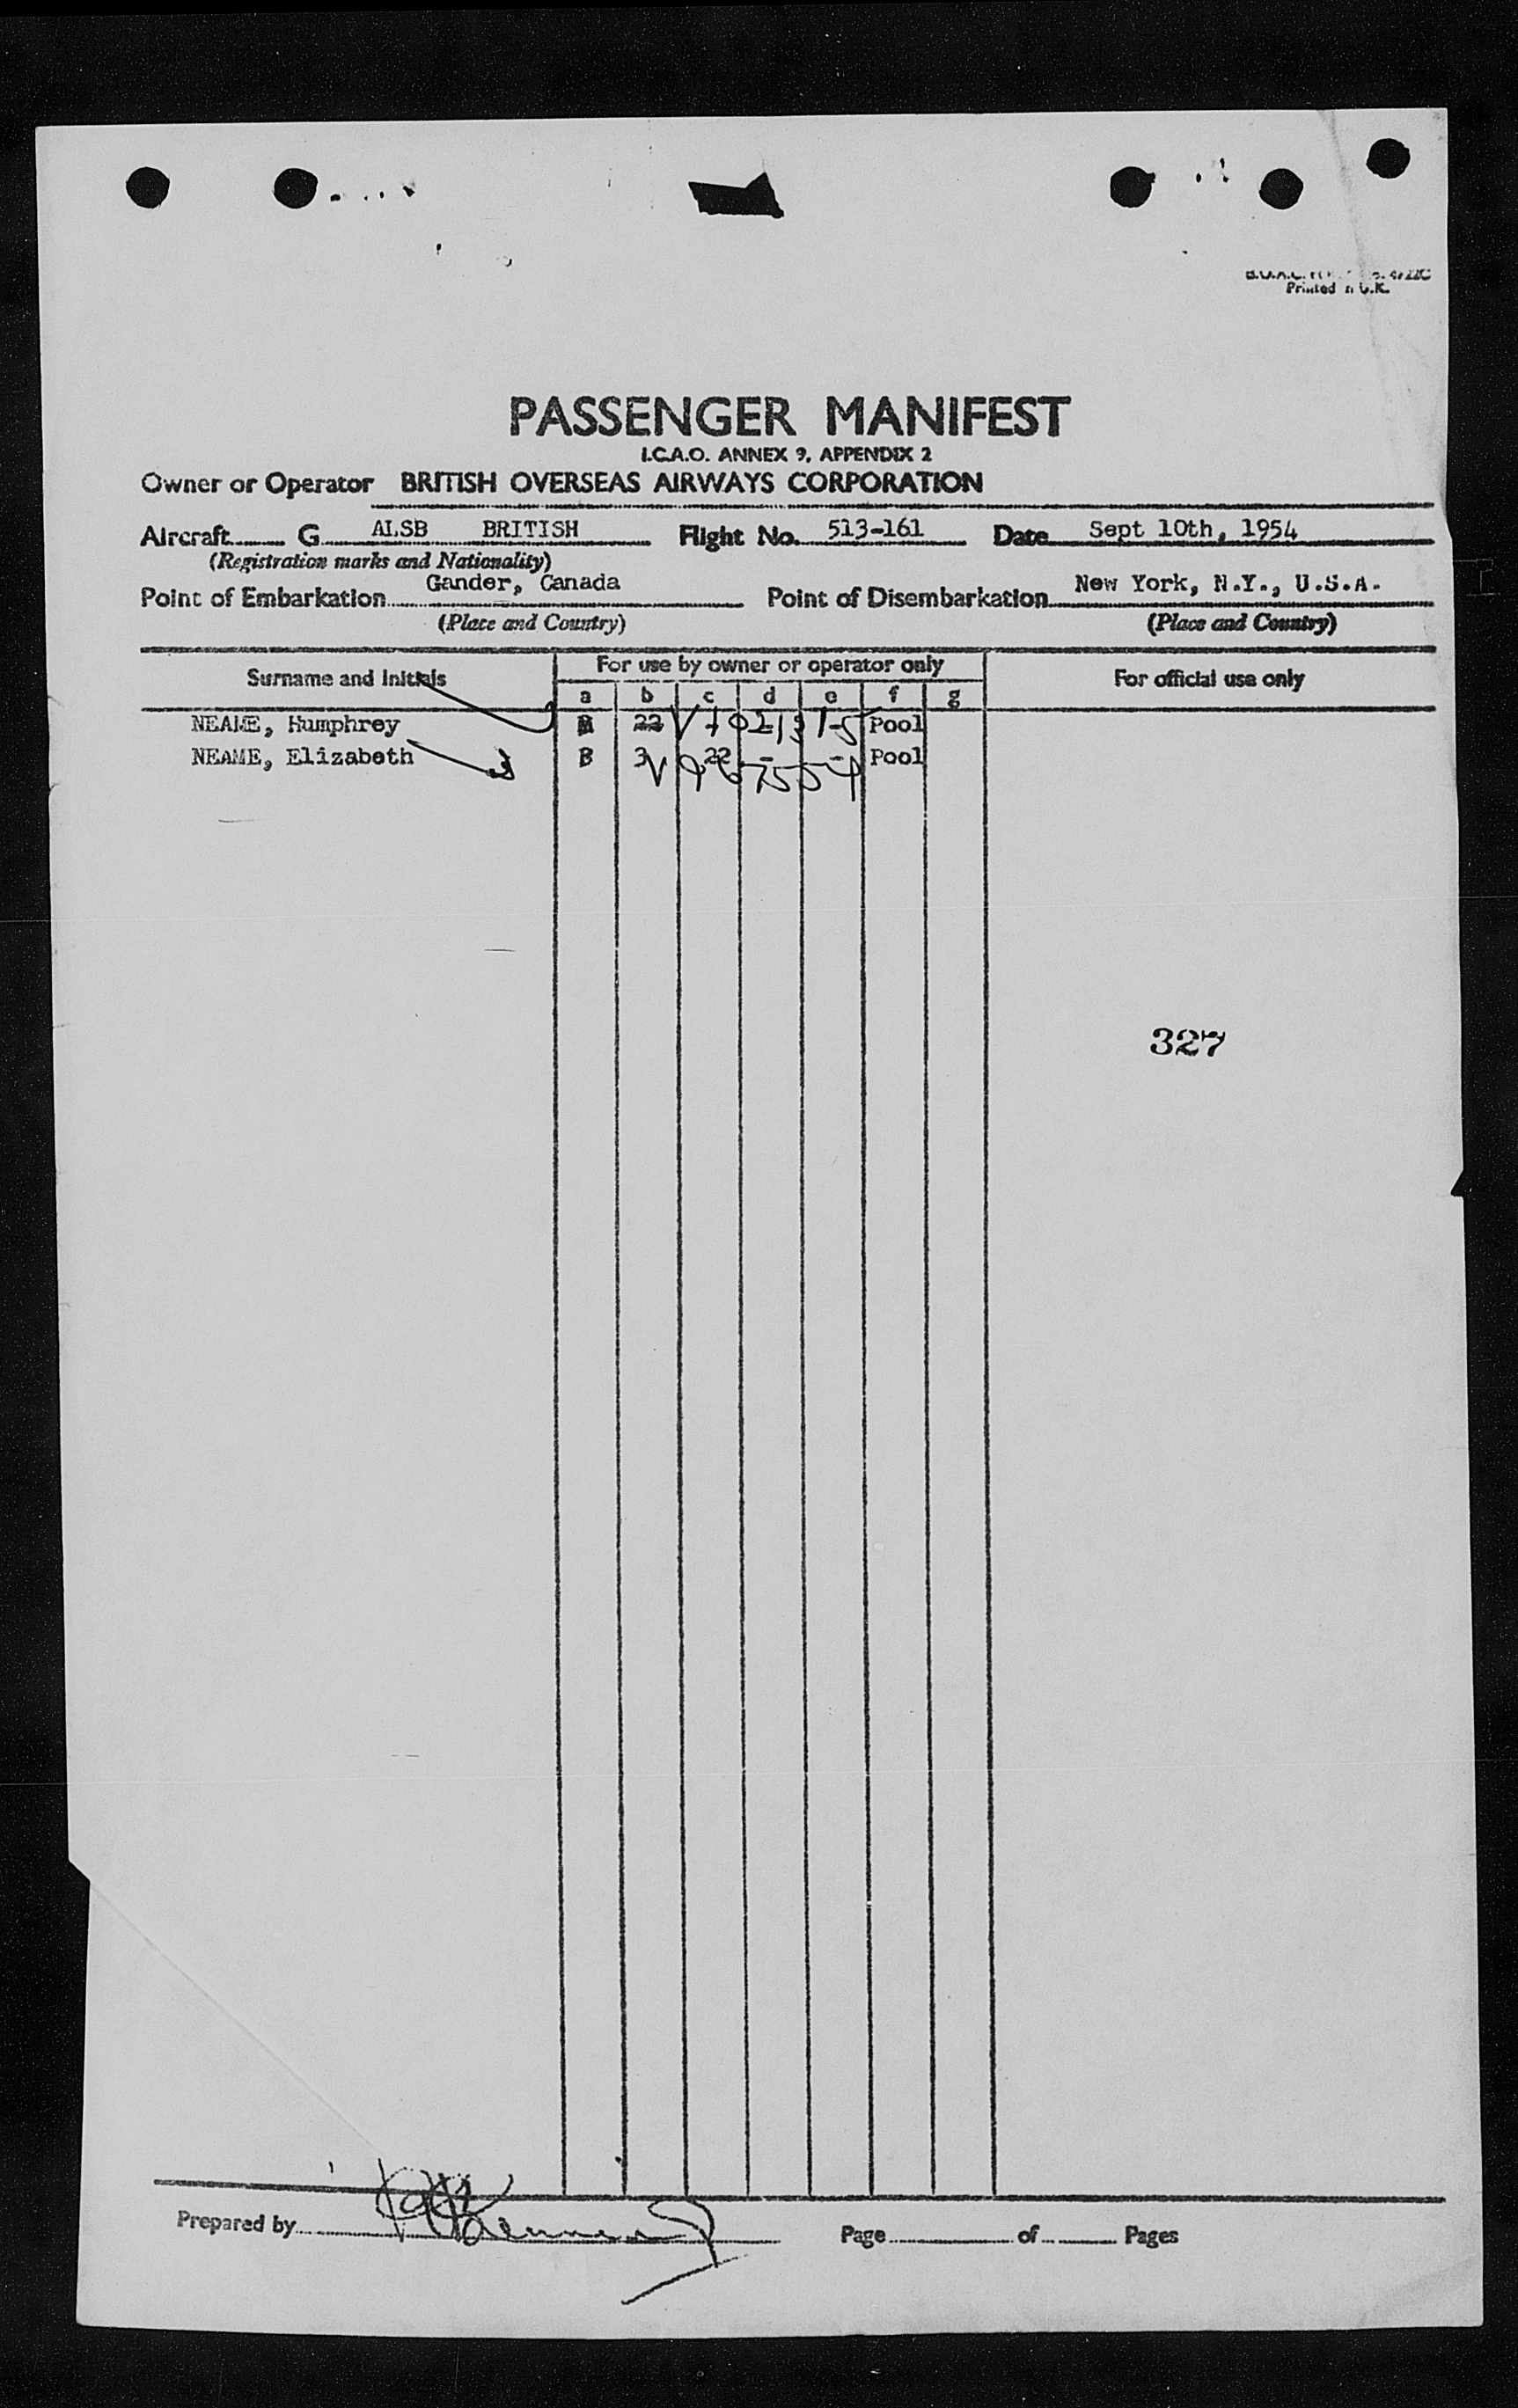 Printed in U.K.
PASSENGER MANIFEST
I.C.A.O. ANNEX 9, APPENDIX 2
Owner or Operator BRITISH OVERSEAS AIRWAYS CORPORATION
Aircraft G ALSB BRITISH Flight No. 513-161 Date Sept 10th, 1954
(Registration marks and Nationality)
Point of Embarkation Gander, Canada Point of Disembarkation New York, N.Y., U.S.A.
(Place and Country) (Place and Country)
Surname and Initials For use by owner or operator only For official use only
a b c d e f g
NEAME, Humphrey 22 Pool
NEAME, Elizabeth B 3 22 - - Pool
327
Prepared by Page of Pages